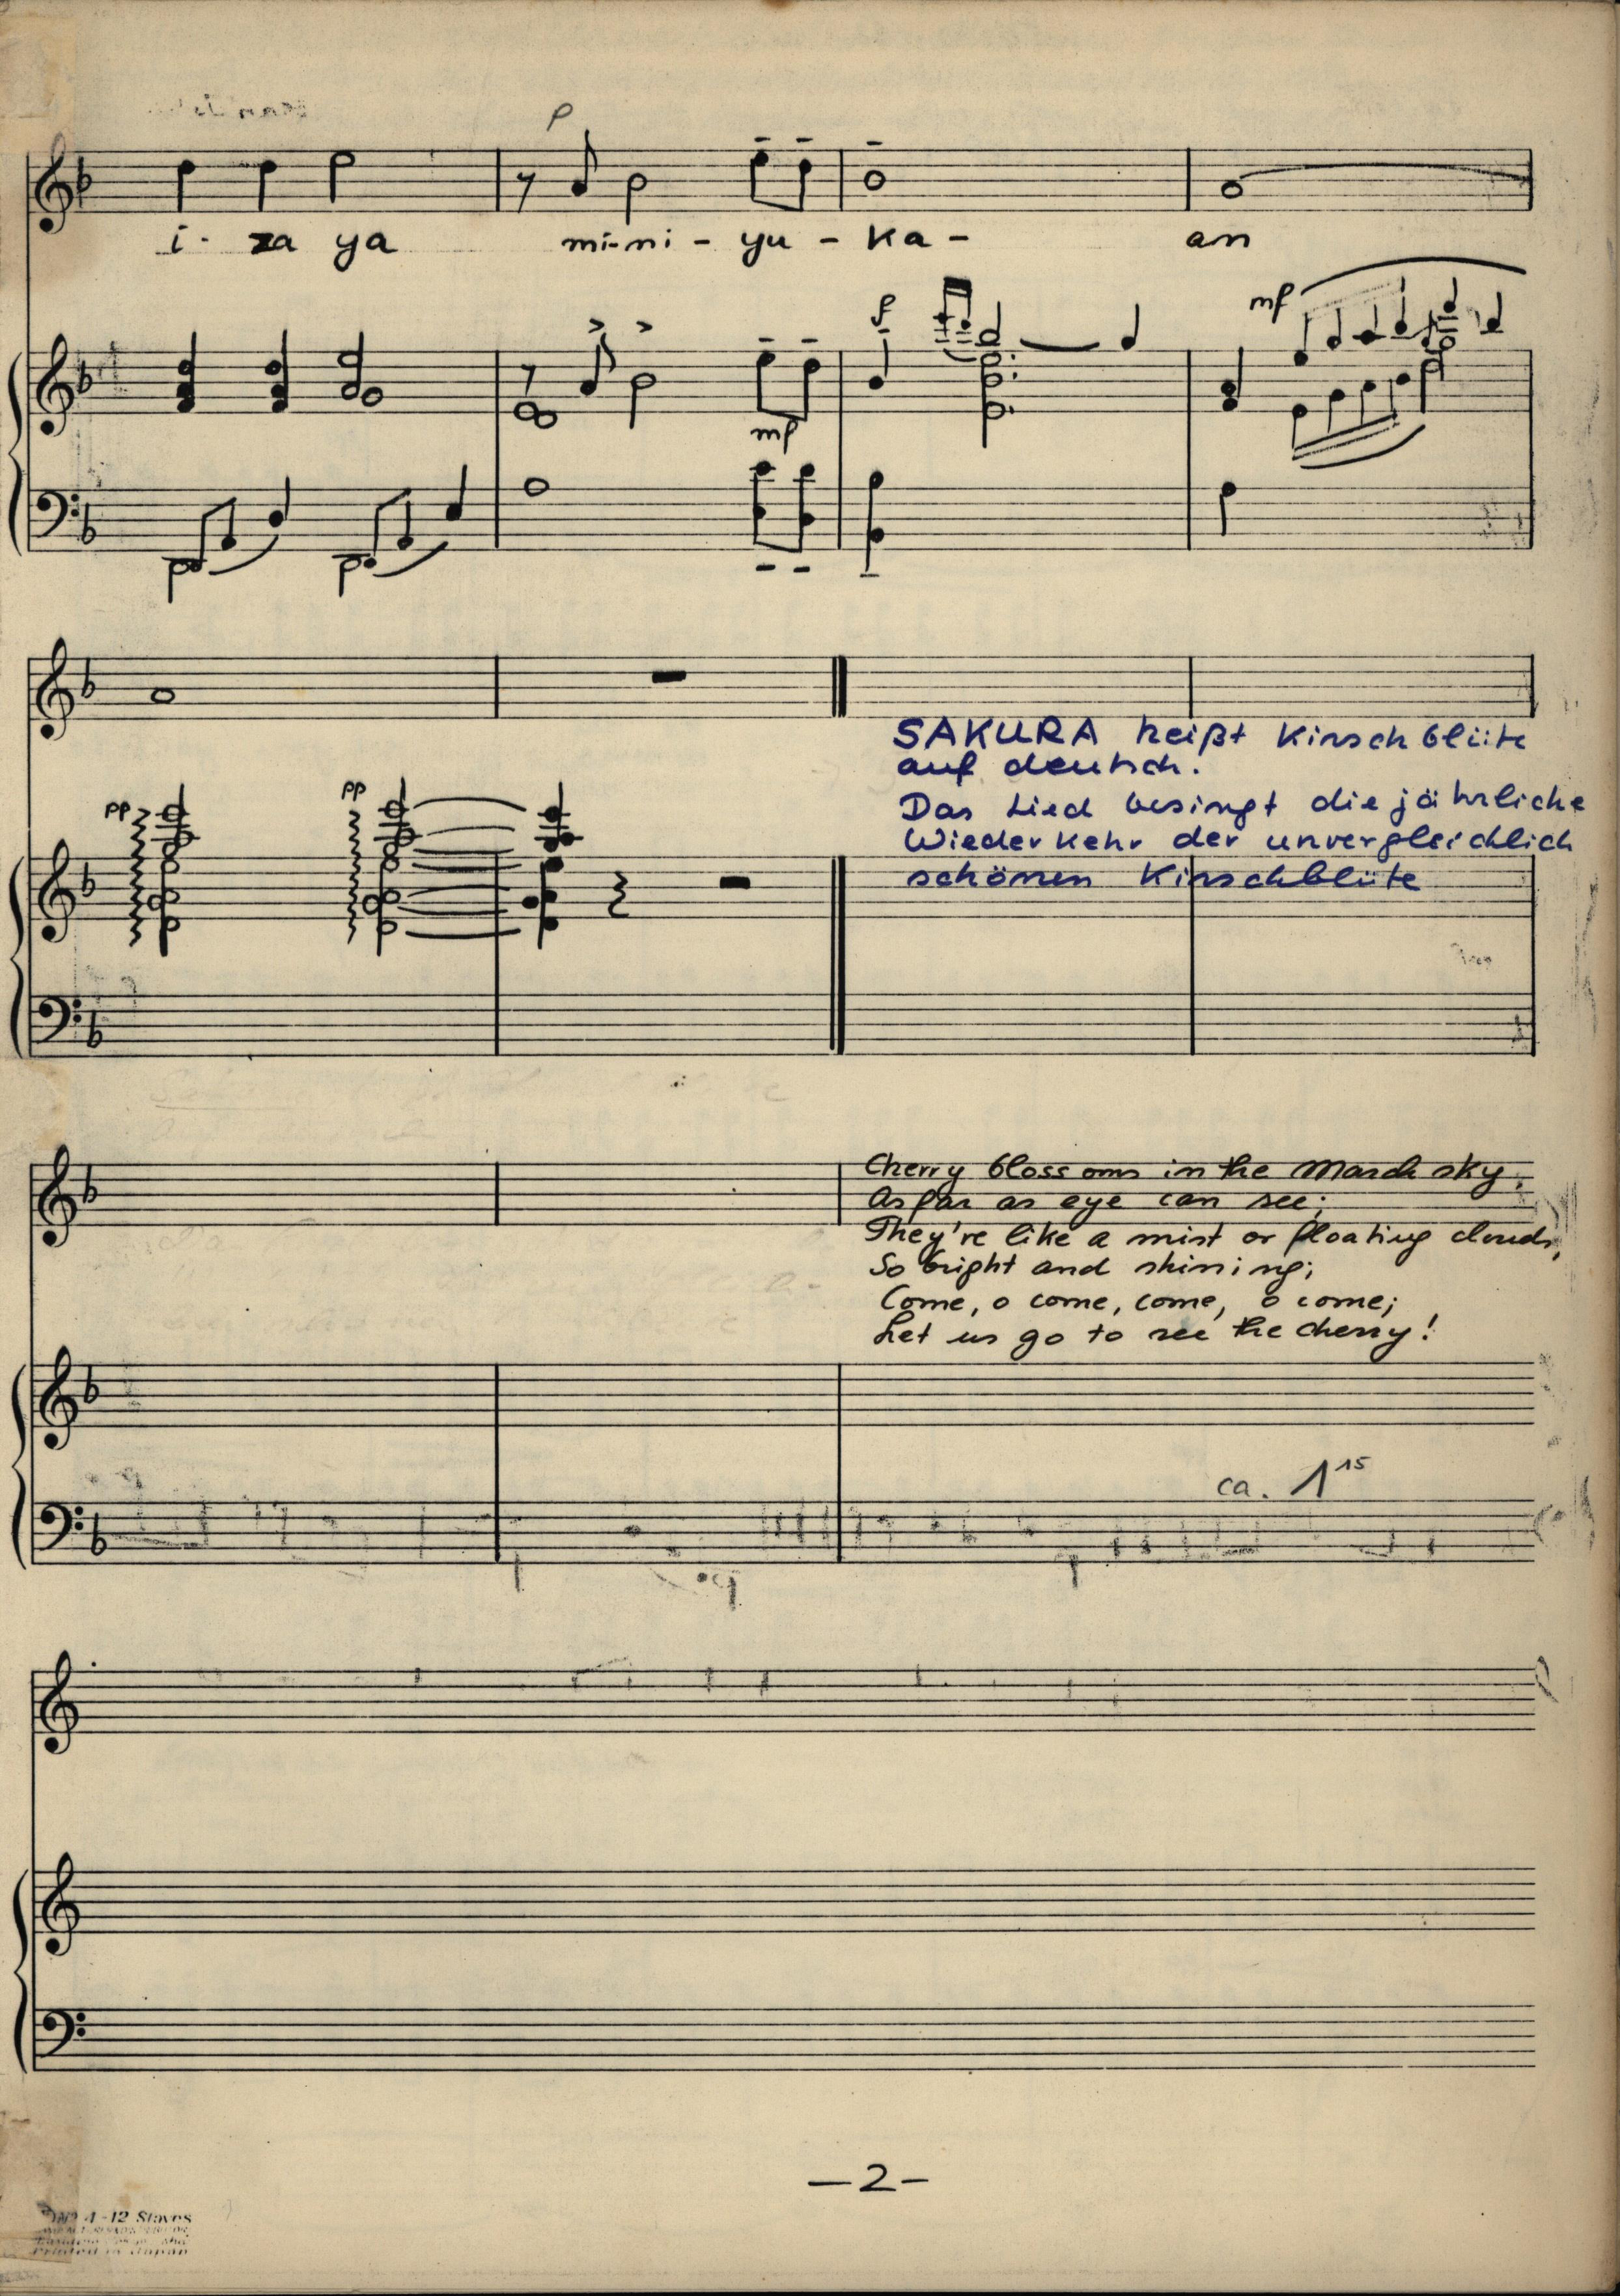 p
i- za ya mi-ni- yu- ka- an
mf
f
mf
pp
pp
SAKURA heißt Kirschblüte
auf deutsch.
Das Lied besingt die jährliche
Wiederkehr der unvergleichlich
schönen Kirschblüte
Cherry blossoms in the March sky,
As far as eye can see;
They're like a mist or floating clouds,
So bright and shining;
Come, o come, come, o come;
Let us go to see the cherry!
ca. 1 15
—2—
No 4-12 Staves
Printed in Japan